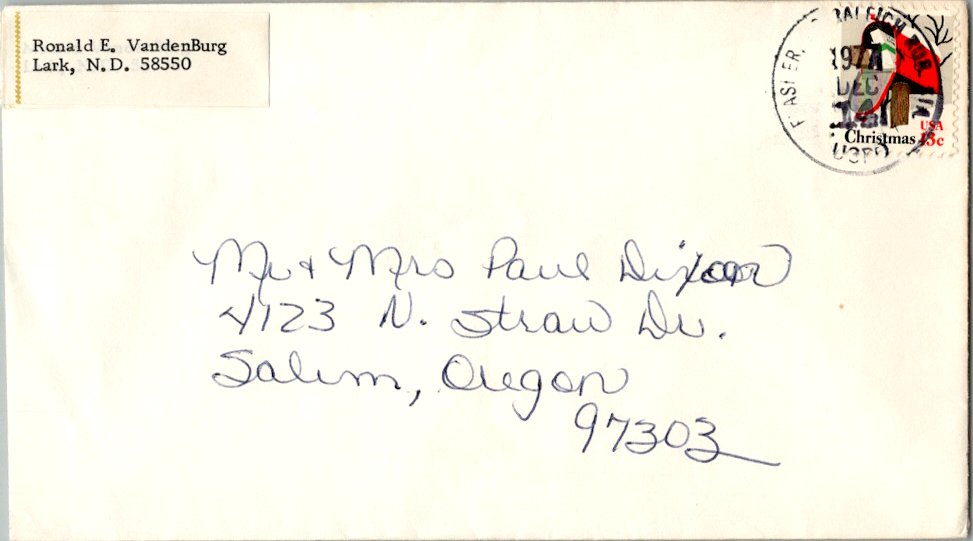 Ronald E. VandenBurg
Lark, N.D. 58550
RALEIGH
1977
DEC
USPO
USA
Christmas 13c
Mr + Mrs Paul Dixon
4123 N. Straw Dr.
Salem, Oregon
97303